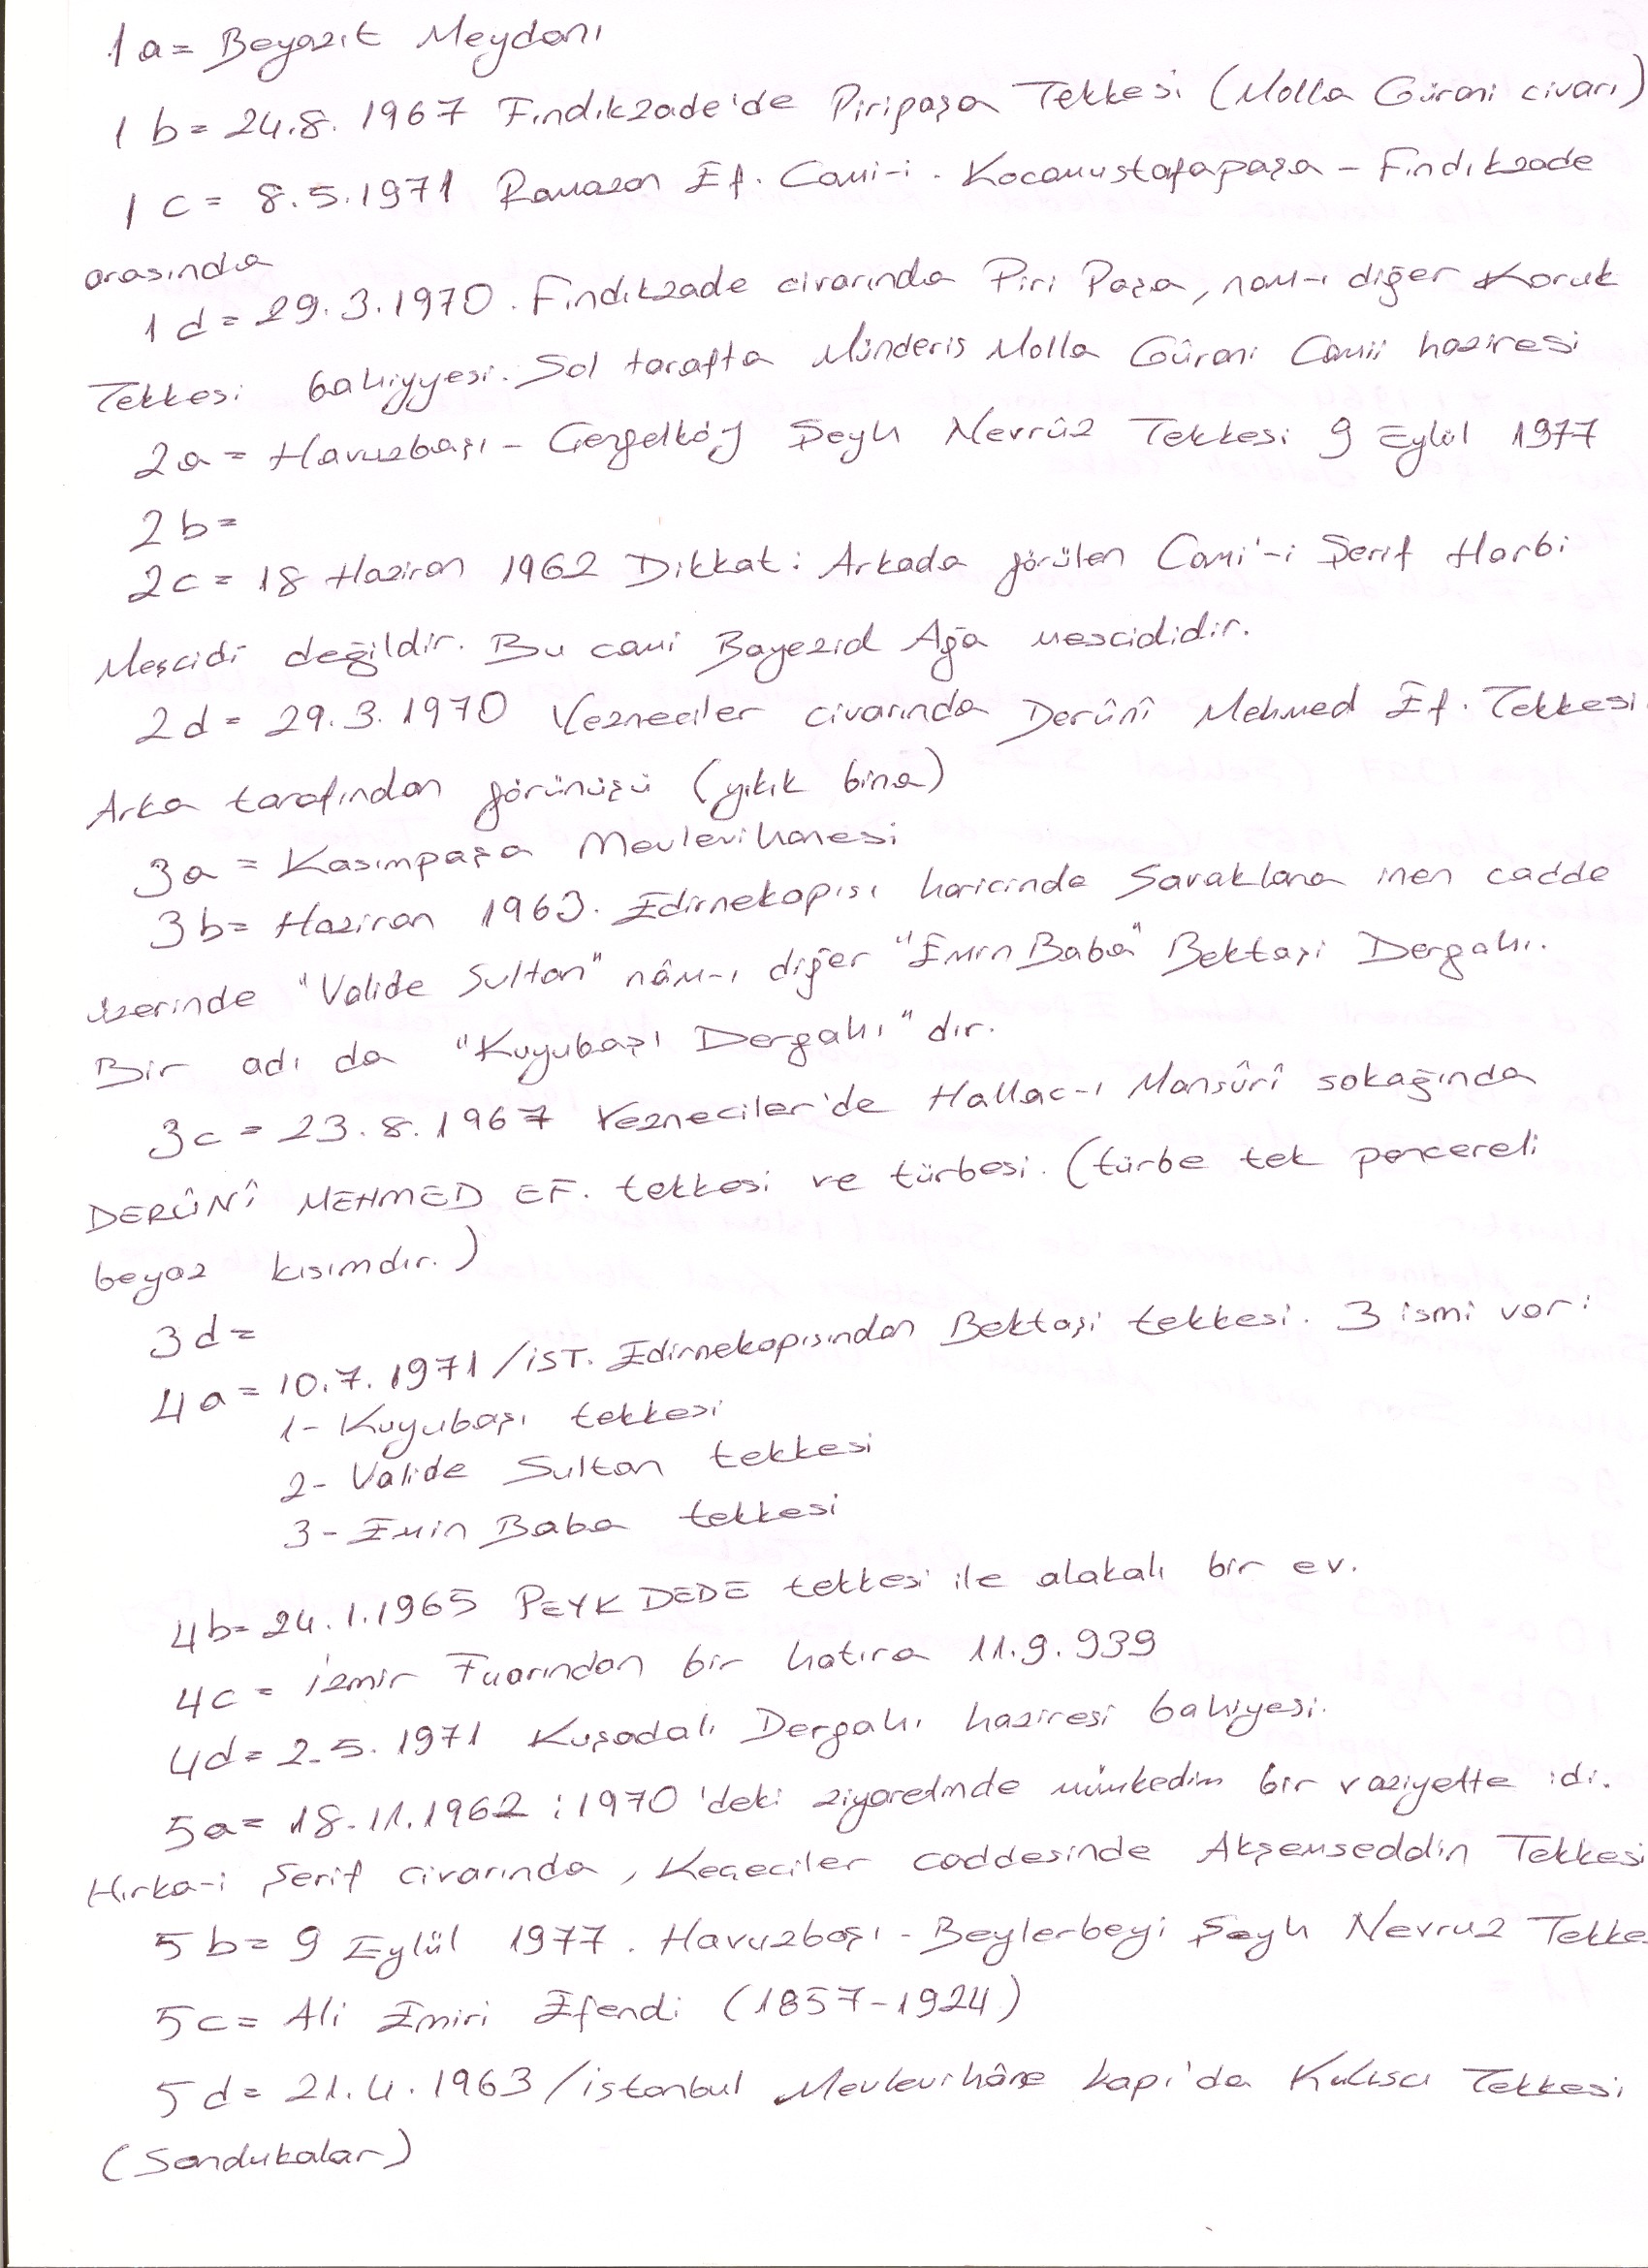 1a= Beyazıt Meydanı
1b= 24.8.1967 Fındıkzade'de Piripaşa Tekkesi (Molla Gürani civarı)
1c= 8.5.1971 Ramazan Ef. Cami-i. Kocamustafapaşa - Fındıkzade
arasında
1d= 29.3.1970. Fındıkzade civarında Piri Paşa, nam-ı diğer Koruk
Tekkesi bakiyyesi. Sol tarafta Münderis Molla Gûrani Camii haziresi
2a= Havuzbaşı - Çengelköy Şeyh Nevrûz Tekkesi 9 Eylül 1977
2b=
2c= 18 Haziran 1962 Dikkat: Arkada görülen Cami'-i Şerif Harbi
Mescidi değildir. Bu cami Bayezid Ağa mescididir.
2d= 29.3.1970 Vezneciler civarında Derûnî Mehmed Ef. Tekkesi
Arka tarafından görünüşü (yıkık bina)
3a= Kasımpaşa Mevlevihanesi
3b= Haziran 1963. Edirnekapısı haricinde Savaklara inen cadde
üzerinde "Valide Sultan" nâm-ı diğer "Emin Baba" Bektaşi Dergahı.
Bir adı da "Kuyubaşı Dergahı" dır.
3c= 23.8.1967 Vezneciler'de Hallac-ı Mansûrî sokağında
DERÛNÎ MEHMED EF. tekkesi ve türbesi. (türbe tek pencereli
beyaz kısımdır.)
3d=
4a= 10.7.1971/İST. Edirnekapısından Bektaşi tekkesi. 3 ismi var:
1- Kuyubaşı tekkesi
2- Valide Sultan tekkesi
3- Emin Baba tekkesi
4b= 24.1.1965 PEYK DEDE tekkesi ile alakalı bir ev.
4c= İzmir Fuarından bir hatıra 11.9.939
4d= 2.5.1971 Kuşadalı Dergahı haziresi bakiyesi.
5a= 18.11.1962; 1970'deki ziyaretinde münkedim bir vaziyette idi.
Hırka-i Şerif civarında, Keçeciler caddesinde Akşemseddin Tekkesi
5b= 9 Eylül 1977. Havuzbaşı - Beylerbeyi Şeyh Nevruz Tekke
5c= Ali Emiri Efendi (1857-1924)
5d= 21.4.1963/İstanbul Mevlevihâne kapı'da Tekkesi
(Sandukalar)